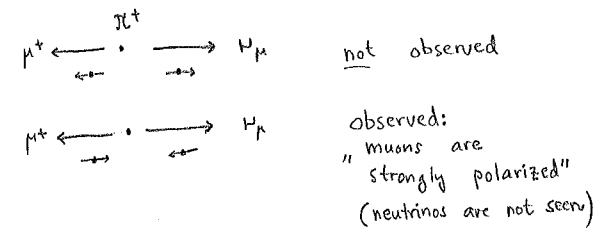 π+
μ+ νμ not observed
μ+ νμ observed:
" muons are
strongly polarized"
(neutrinos are not seen)